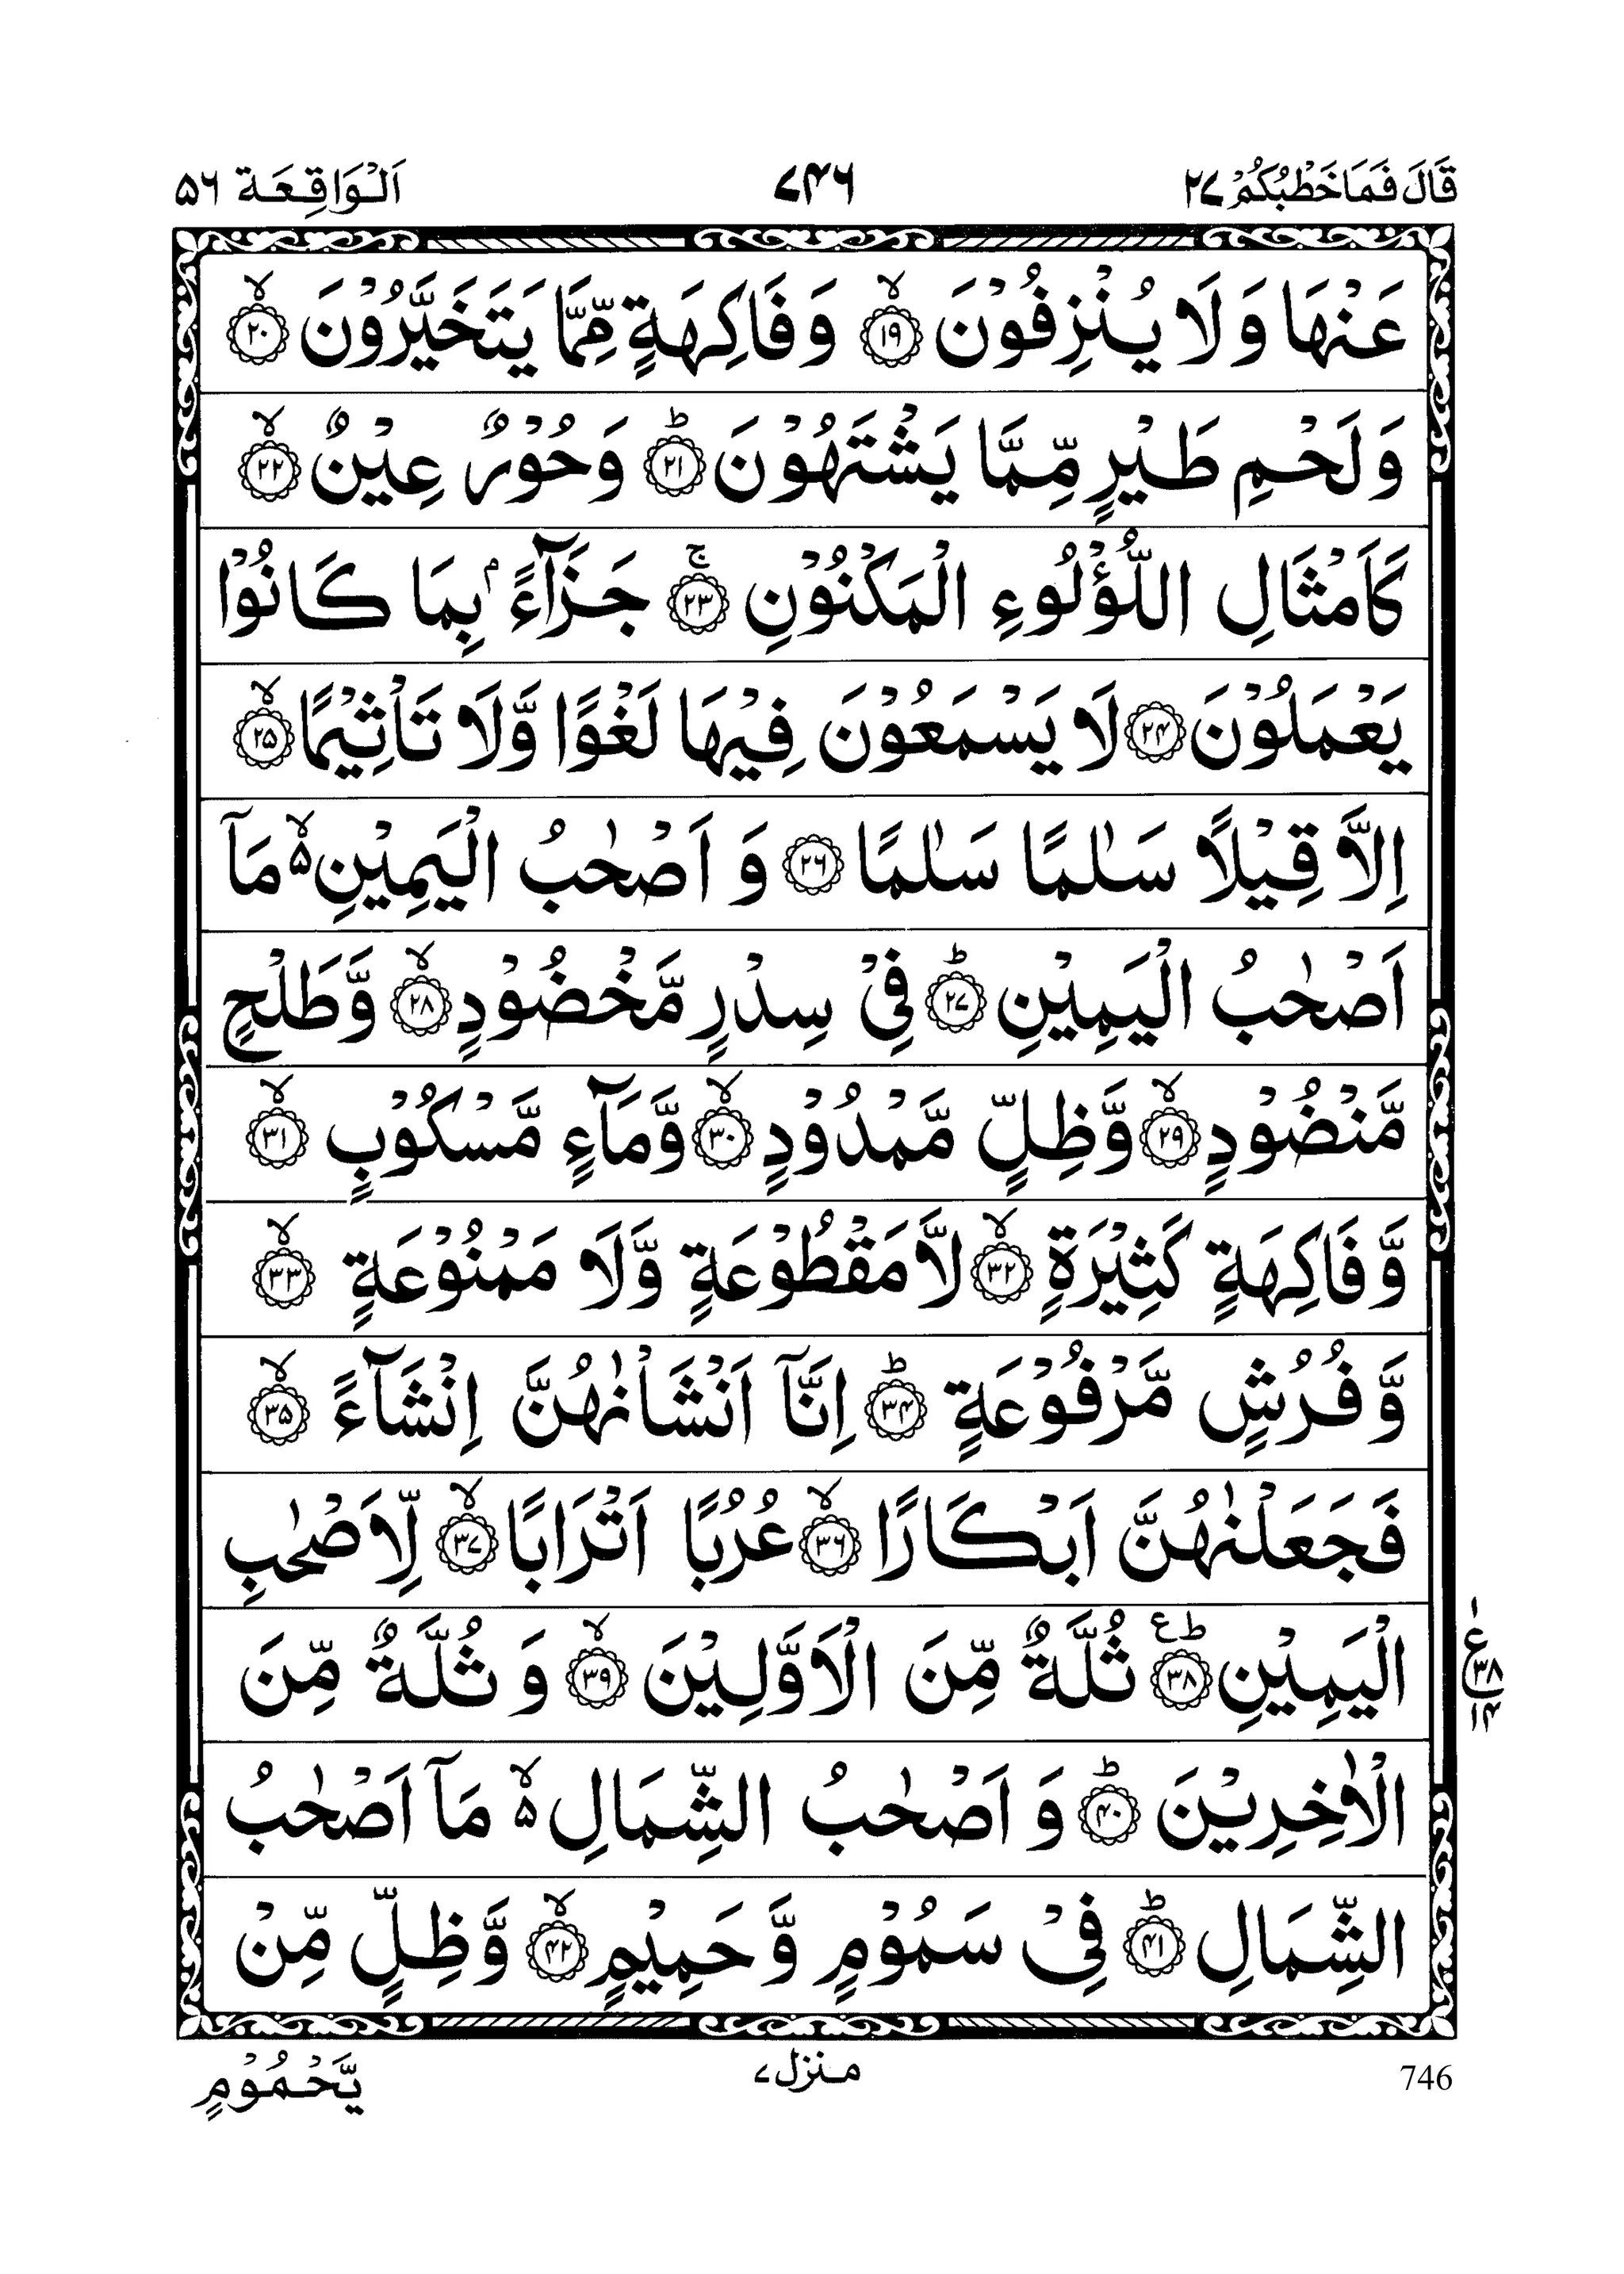 قَالَ فَمَا خَطْبُكُمْ ٢٧ ٧٤٦ اَلْوَاقِعَة ٥٦
عَنْهَا وَ لَا يُنْزِفُوْنَ ۙ‏﴿١٩﴾ وَ فَاكِهَةٍ مِّمَّا يَتَخَيَّرُوْنَ ۙ‏﴿٢٠﴾
وَ لَحْمِ طَيْرٍ مِّمَّا يَشْتَهُوْنَ ؕ‏﴿٢١﴾ وَ حُوْرٌ عِيْنٌ ۙ‏﴿٢٢﴾
كَاَمْثَالِ اللُّؤْلُوءِ الْمَكْنُوْنِ ۚ‏﴿٢٣﴾ جَزَآءًۢ بِمَا كَانُوْا
يَعْمَلُوْنَ ‏﴿٢٤﴾ لَا يَسْمَعُوْنَ فِيْهَا لَغْوًا وَّلَا تَاْثِيْمًا ۙ‏﴿٢٥﴾
اِلَّا قِيْلًا سَلٰمًا سَلٰمًا ‏﴿٢٦﴾ وَ اَصْحٰبُ الْيَمِيْنِ ۙ٥ مَاۤ
اَصْحٰبُ الْيَمِيْنِ ؕ‏﴿٢٧﴾ فِيْ سِدْرٍ مَّخْضُوْدٍ ۙ‏﴿٢٨﴾ وَّ طَلْحٍ
مَّنْضُوْدٍ ۙ‏﴿٢٩﴾ وَّ ظِلٍّ مَّمْدُوْدٍ ۙ‏﴿٣٠﴾ وَّ مَآءٍ مَّسْكُوْبٍ ۙ‏﴿٣١﴾
وَّ فَاكِهَةٍ كَثِيْرَةٍ ۙ‏﴿٣٢﴾ لَّا مَقْطُوْعَةٍ وَّلَا مَمْنُوْعَةٍ ۙ‏﴿٣٣﴾
وَّ فُرُشٍ مَّرْفُوْعَةٍ ؕ‏﴿٣٤﴾ اِنَّاۤ اَنْشَاْنٰهُنَّ اِنْشَآءً ۙ‏﴿٣٥﴾
فَجَعَلْنٰهُنَّ اَبْكَارًا ۙ‏﴿٣٦﴾ عُرُبًا اَتْرَابًا ۙ‏﴿٣٧﴾ لِّاَصْحٰبِ
الْيَمِيْنِ ؕع‏﴿٣٨﴾ ثُلَّةٌ مِّنَ الْاَوَّلِيْنَ ۙ‏﴿٣٩﴾ وَ ثُلَّةٌ مِّنَ
١ ع ٣٨ ١٤
الْاٰخِرِيْنَ ؕ‏﴿٤٠﴾ وَ اَصْحٰبُ الشِّمَالِ ۙ٥ مَاۤ اَصْحٰبُ
الشِّمَالِ ؕ‏﴿٤١﴾ فِيْ سَمُوْمٍ وَّ حَمِيْمٍ ۙ‏﴿٤٢﴾ وَّ ظِلٍّ مِّنْ
746 منزل ٧ يَّحْمُوْمٍ